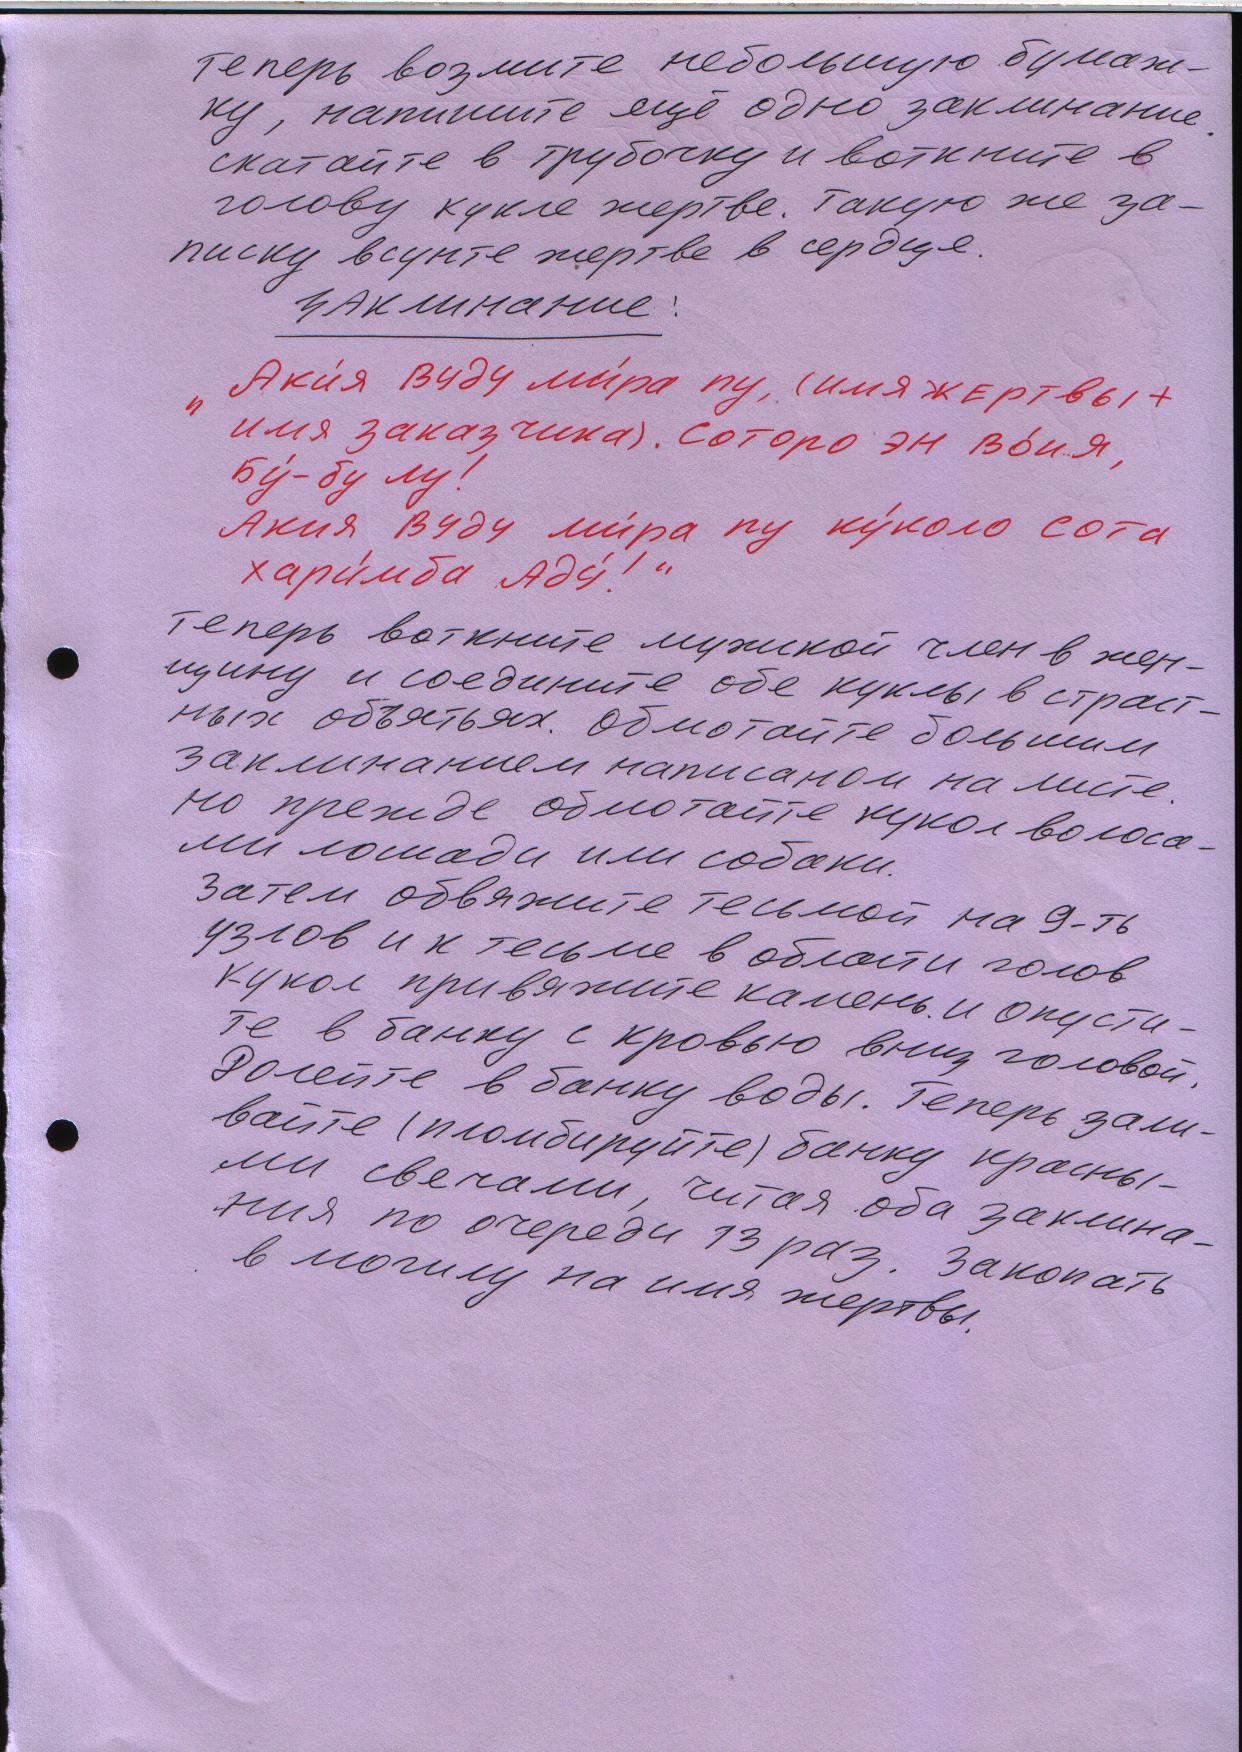 Теперь возмите небольшую бумаж-
ку, напишите ещё одно заклинание.
скатайте в трубочку и воткните в
голову кукле жертве. Такую же за-
писку всунте жертве в сердце.
Заклинание:
„Аки́я Вуду ми́ра пу, (имя жертвы +
имя заказчика). Соторо эн Во́ия,
Бу́-бу лу!
Акия Вуду ми́ра пу ку́коло сота
хари́мба Аду́!“
Теперь воткните мужской член в жен-
щину и соедините обе куклы в страст-
ных объятьях. Обмотайте большим
заклинанием написаном на листе.
но прежде обмотайте кукол волоса-
ми лошади или собаки.
Затем обвяжите тесьмой на 9-ть
узлов и к тесьме в области голов
кукол привяжите камень. и опусти-
те в банку с кровью вниз головой.
Долейте в банку воды. Теперь зали-
вайте (пломбируйте) банку красны-
ми свечами, читая оба заклина-
ния по очереди 13 раз. Закопать
в могилу на имя жертвы.